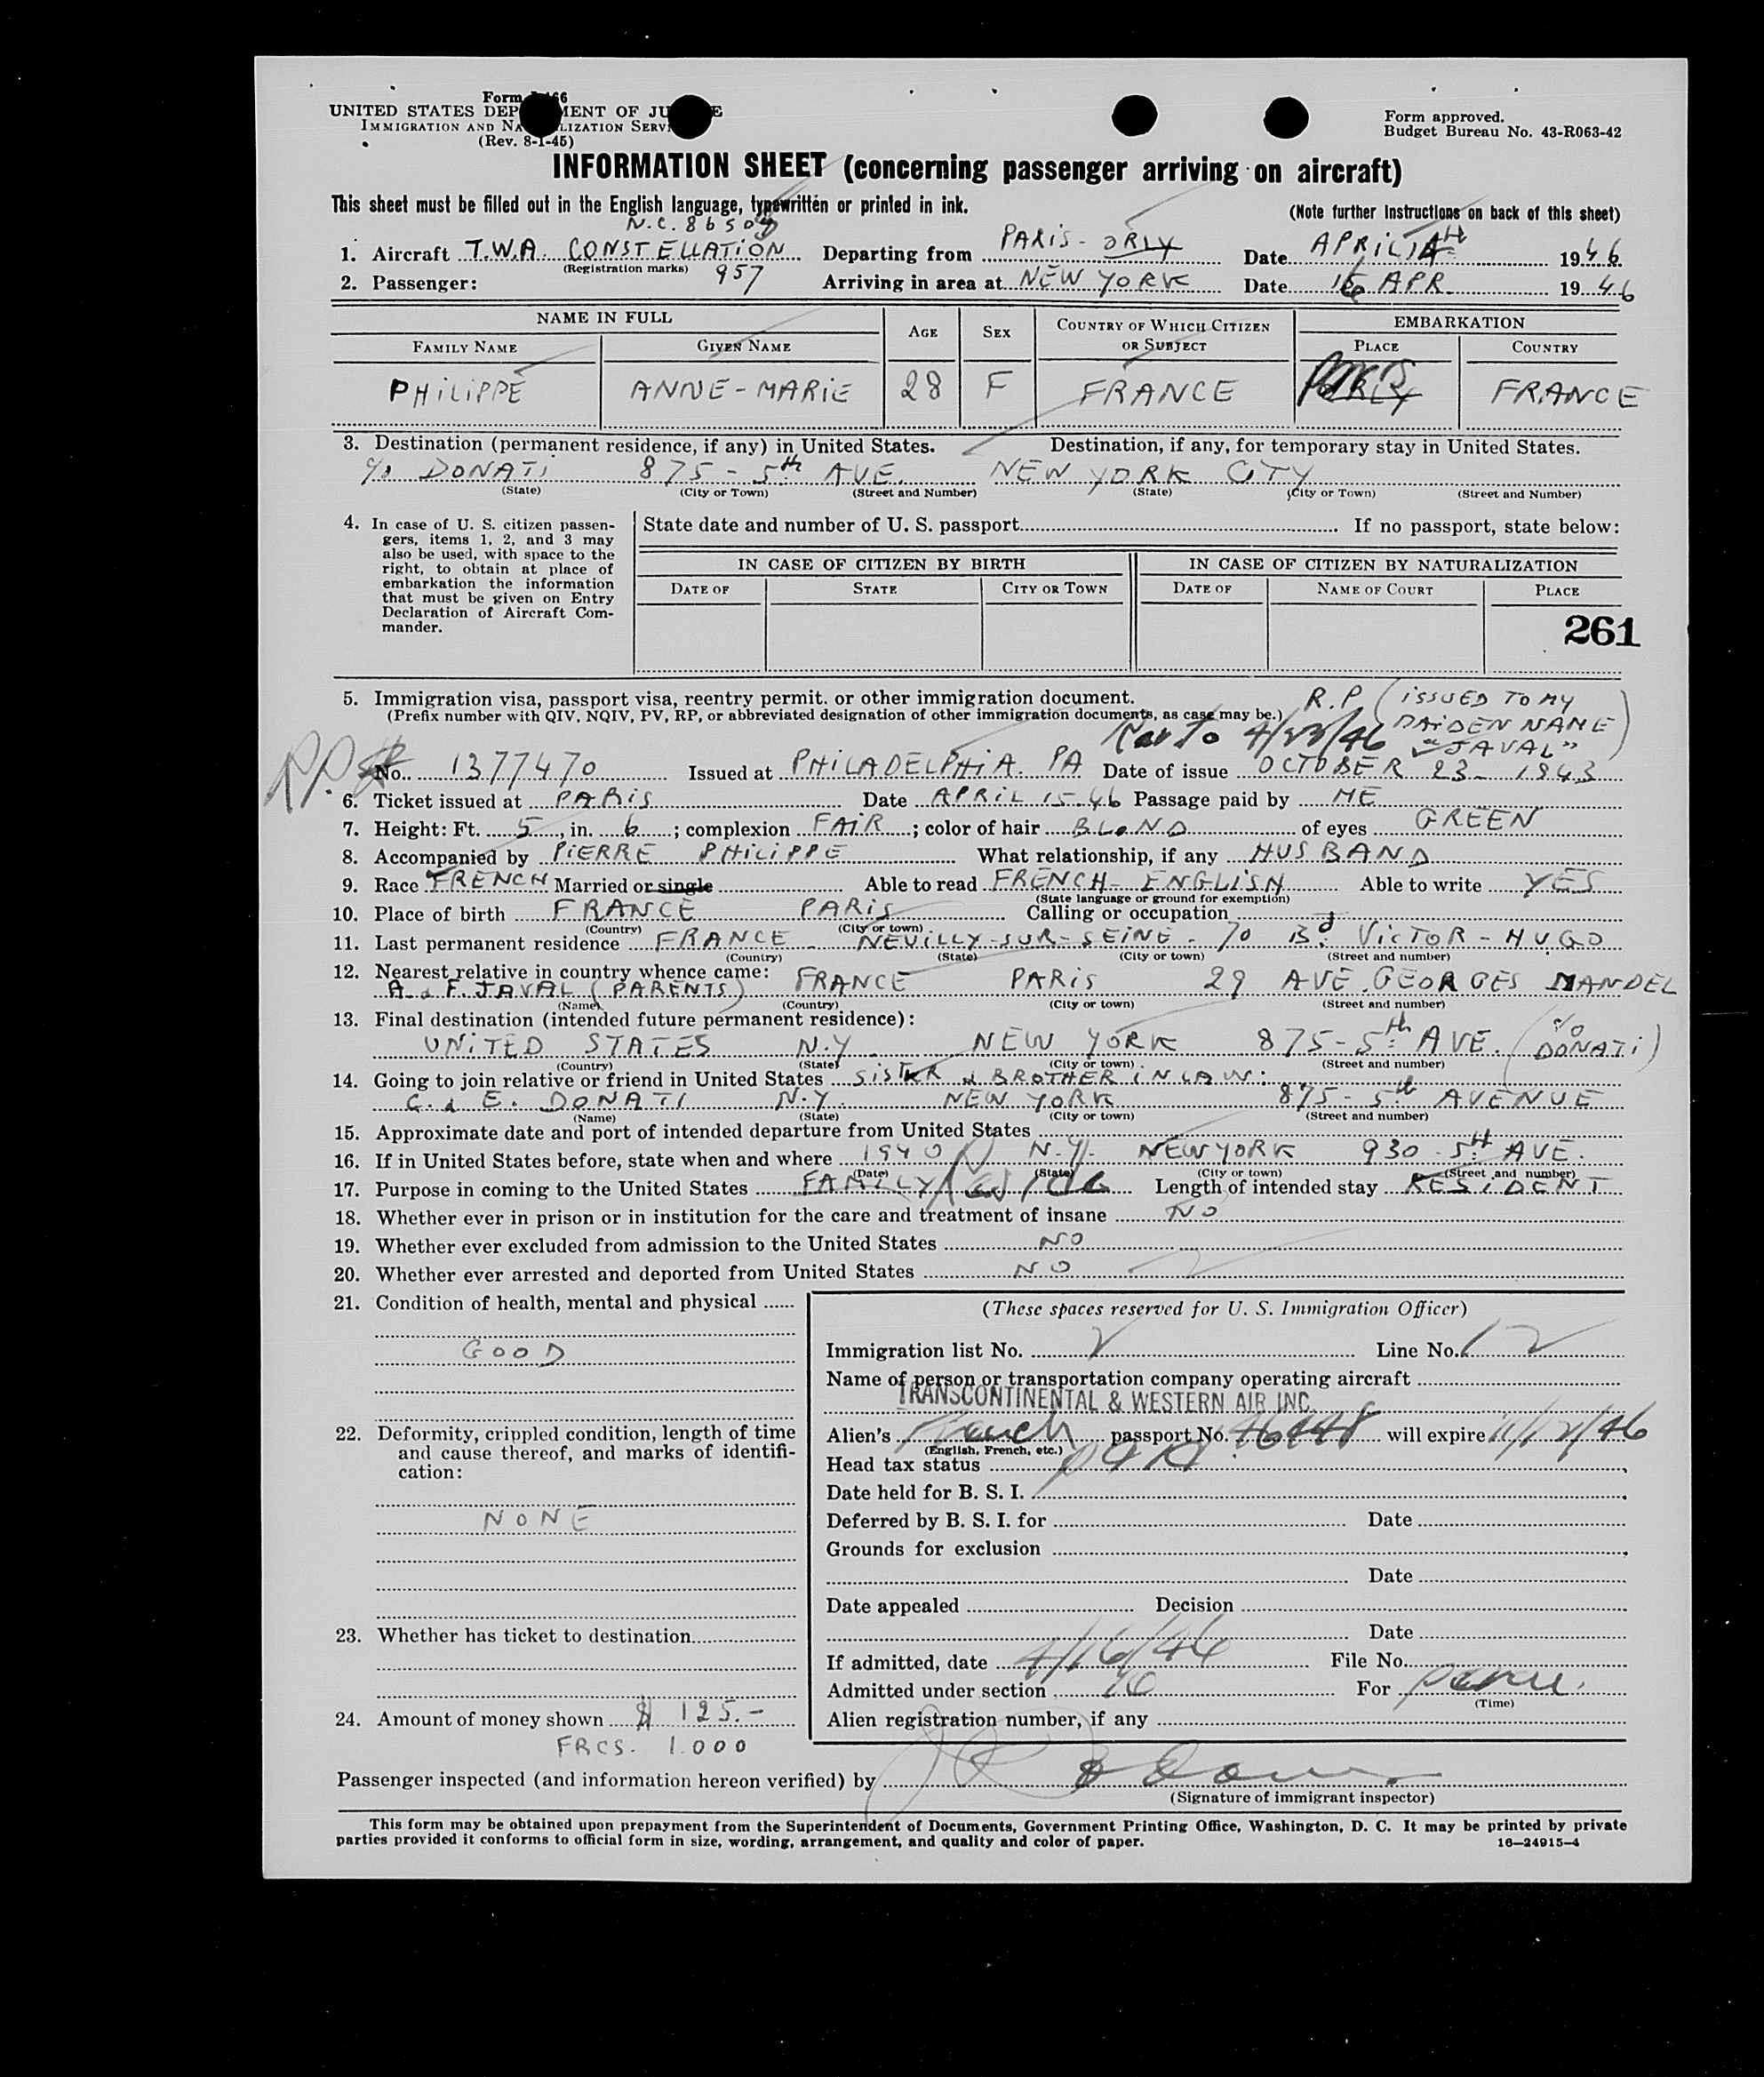 Form I-466
UNITED STATES DEPARTMENT OF JUSTICE
IMMIGRATION AND NATURALIZATION SERVICE
(Rev. 8-1-45)
Form approved.
Budget Bureau No. 43-R063-42
INFORMATION SHEET (concerning passenger arriving on aircraft)
This sheet must be filled out in the English language, typewritten or printed in ink.
(Note further instructions on back of this sheet)
N.C. 86509
1. Aircraft T.W.A. CONSTELLATION Departing from PARIS - ORLY Date APRIL 1946
(Registration marks) 957
2. Passenger: Arriving in area at NEW YORK Date 16 APR 1946
NAME IN FULL AGE SEX COUNTRY OF WHICH CITIZEN OR SUBJECT EMBARKATION
FAMILY NAME GIVEN NAME PLACE COUNTRY
PHILIPPE ANNE-MARIE 28 F FRANCE ORLY FRANCE
3. Destination (permanent residence, if any) in United States. Destination, if any, for temporary stay in United States.
c/o DONATI 875 - 5th AVE. NEW YORK CITY
(State) (City or Town) (Street and Number) (State) (City or Town) (Street and Number)
4. In case of U. S. citizen passen-
gers, items 1, 2, and 3 may
also be used, with space to the
right, to obtain at place of
embarkation the information
that must be given on Entry
Declaration of Aircraft Com-
mander.
State date and number of U. S. passport If no passport, state below:
IN CASE OF CITIZEN BY BIRTH IN CASE OF CITIZEN BY NATURALIZATION
DATE OF STATE CITY OR TOWN DATE OF NAME OF COURT PLACE
261
5. Immigration visa, passport visa, reentry permit. or other immigration document. R.P (ISSUED TO MY
(Prefix number with QIV, NQIV, PV, RP, or abbreviated designation of other immigration documents, as case may be.) MAIDEN NAME
to 4/23/46 "JAVAL")
R.P. No. 1377470 Issued at PHILADELPHIA PA Date of issue OCTOBER 23 - 1943
6. Ticket issued at PARIS Date APRIL 15.46 Passage paid by ME
7. Height: Ft. 5, in. 6; complexion FAIR; color of hair BLOND of eyes GREEN
8. Accompanied by PIERRE PHILIPPE What relationship, if any HUSBAND
9. Race FRENCH Married or single Able to read FRENCH - ENGLISH Able to write YES
(State language or ground for exemption)
10. Place of birth FRANCE PARIS Calling or occupation
(Country) (City or town)
11. Last permanent residence FRANCE - NEUILLY-SUR-SEINE - 70 Bd VICTOR-HUGO
(Country) (State) (City or town) (Street and number)
12. Nearest relative in country whence came: FRANCE PARIS 29 AVE. GEORGES MANDEL
A. & F. JAVAL (PARENTS)
(Name) (Country) (City or town) (Street and number)
13. Final destination (intended future permanent residence):
UNITED STATES N.Y. NEW YORK 875 - 5th AVE. (c/o DONATI)
(Country) (State) (City or town) (Street and number)
14. Going to join relative or friend in United States SISTER & BROTHER IN LAW:
C. & E. DONATI N.Y. NEW YORK 875 - 5th AVENUE
(Name) (State) (City or town) (Street and number)
15. Approximate date and port of intended departure from United States
16. If in United States before, state when and where 1940 N.Y. NEW YORK 930 5th AVE.
(Date) (State) (City or town) (Street and number)
17. Purpose in coming to the United States FAMILY Length of intended stay RESIDENT
18. Whether ever in prison or in institution for the care and treatment of insane NO
19. Whether ever excluded from admission to the United States NO
20. Whether ever arrested and deported from United States NO
21. Condition of health, mental and physical
GOOD
22. Deformity, crippled condition, length of time
and cause thereof, and marks of identifi-
cation:
NONE
23. Whether has ticket to destination
24. Amount of money shown $ 125.-
FRCS. 1.000
(These spaces reserved for U. S. Immigration Officer)
Immigration list No. Line No. 12
Name of person or transportation company operating aircraft
TRANSCONTINENTAL & WESTERN AIR INC.
Alien's French passport No. will expire 11/12/46
(English, French, etc.)
Head tax status
Date held for B. S. I.
Deferred by B. S. I. for Date
Grounds for exclusion
Date
Date appealed Decision
Date
If admitted, date 4/16/46 File No.
Admitted under section For
(Time)
Alien registration number, if any
Passenger inspected (and information hereon verified) by
(Signature of immigrant inspector)
This form may be obtained upon prepayment from the Superintendent of Documents, Government Printing Office, Washington, D. C. It may be printed by private
parties provided it conforms to official form in size, wording, arrangement, and quality and color of paper. 16—24915-4